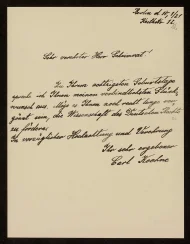 Berlin d. 10./1.21
Sehr geehrter Herr Geheimrat!
Zu Ihrem achtzigsten Geburtstage
spreche ich Ihnen meinen verbindlichsten Glück-
wunsch aus. Möge es Ihnen noch recht lange ver-
gönnt sein, die Wissenschaft des Deutschen Rechts
zu fördern.
In vorzüglicher Hochachtung und Verehrung
Ihr sehr ergebener
Carl